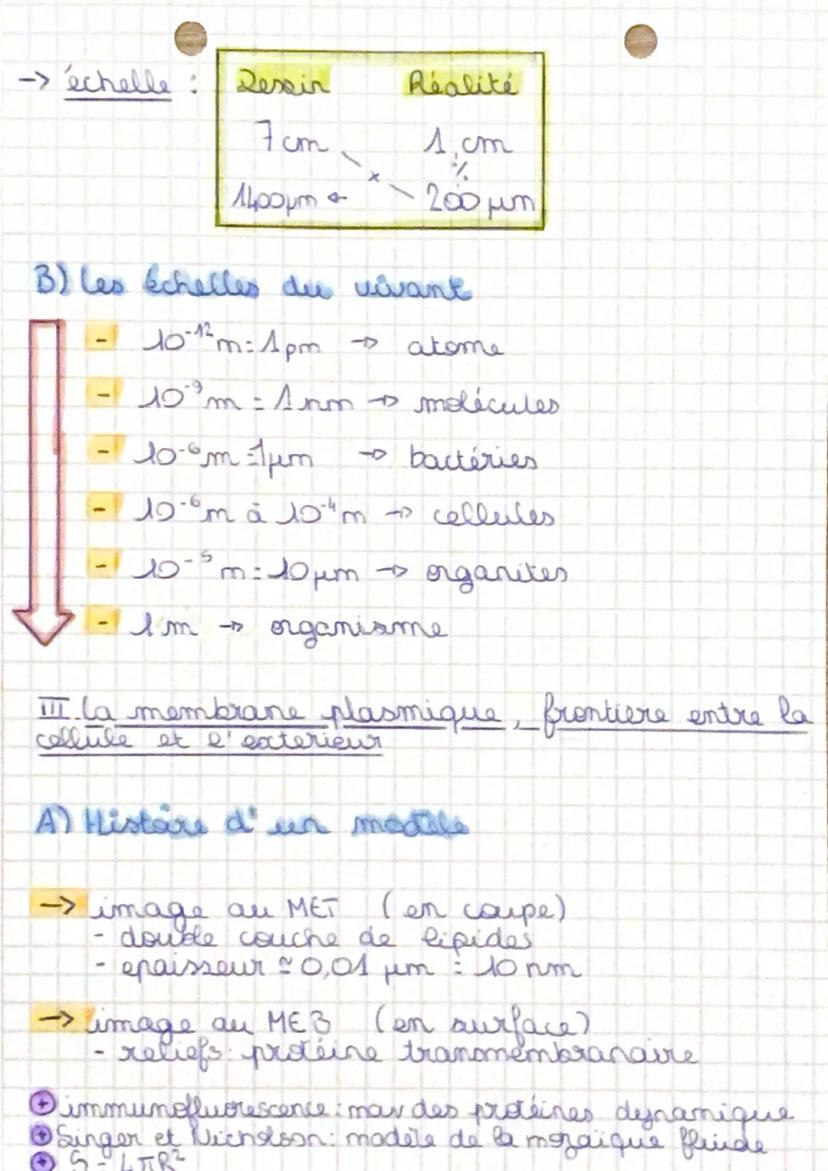 → échelle : Dessin Réalité
7 cm 1 cm
x %
1400µm ← 200 µm
B) Les échelles du vivant
- 10⁻¹²m = 1 pm → atome
- 10⁻⁹m = 1 nm → molécules
- 10⁻⁶m = 1µm → bactéries
- 10⁻⁶m à 10⁻⁴m → cellules
- 10⁻⁵m = 10µm → organites
- 1 m → organisme
III. La membrane plasmique, frontiere entre la
cellule et l'exterieur
A) Histoire d'un modèle
→ image au MET (en coupe)
- double couche de lipides
- epaisseur ≃ 0,01 µm = 10 nm
→ image au MEB (en surface)
- reliefs: protéine transmembranaire
+ immunofluorescence: mav des protéines dynamique
+ Singer et Nicholson: modèle de la mozaïque fluide
+ S = 4πR²